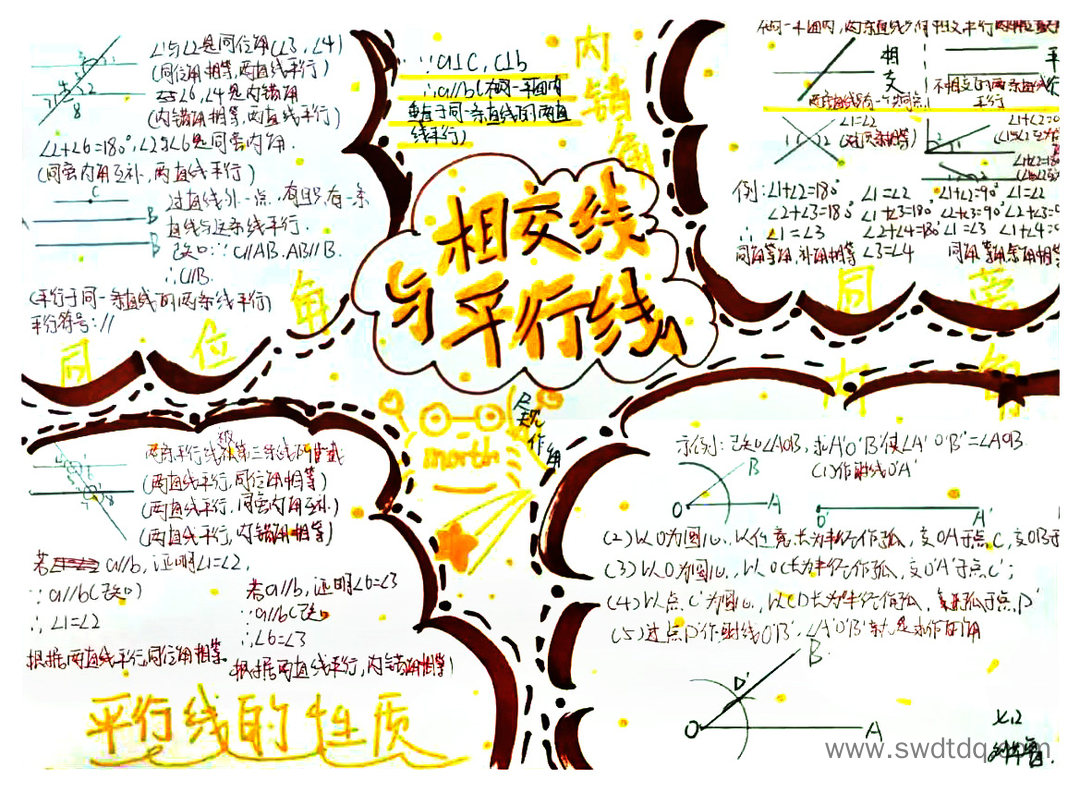 ∠1与∠2是同位角(∠3,∠4)
(同位角相等,两直线平行)
∠6,∠4是内错角
(内错角相等,两直线平行)
∠2+∠6=180°,∠2与∠6是同旁内角.
(同旁内角互补,两直线平行)
过直线外一点,有且只有一条
直线与这条线平行.
已知:∵C//AB.AB//B.
∴C//B.
(平行于同一条直线的两条线平行)
平行符号://
同位角
∵a⊥c,c⊥b
∴a//b(在同一平面内
垂直于同一条直线的两直
线平行)
内错角
相交线
与平行线
相交
平行
两条直线只有一个交点
不相交的两条直线
平行
∠1=∠2
(对顶角相等)
例:∠1+∠2=180° ∠1=∠2
∠2+∠3=180° ∠1+∠3=180°
∴∠1=∠3 ∠2+∠4=180°
同角等角,补角相等 ∠3=∠4
∠1+∠2=90° ∠1=∠2
∠2+∠3=90°
∠1=∠3
同旁内角
(两直线平行,同位角相等)
(两直线平行,同旁内角互补)
(两直线平行,内错角相等)
若a//b,证明∠1=∠2,
∵a//b(已知)
∴∠1=∠2
根据两直线平行,同位角相等
若a//b,证明∠6=∠3
∵a//b(已知
∴∠6=∠3
根据两直线平行,内错角相等)
平行线的性质
尺规作角
north
示例:已知∠AOB,求A'O'B'使∠A'O'B'=∠AOB
(1)作射线O'A'
B
O A
O' A'
(2)以O为圆心,以任意长为半径作弧,交OA于点C,交OB于
(3)以O'为圆心,以OC长为半径作弧,交O'A'于点C';
(4)以点C'为圆心,以CD长为半径作弧,交弧于点D'
(5)过点D'作射线O'B',∠A'O'B'就是求作的角
B
D'
O A
www.swdtdq.com